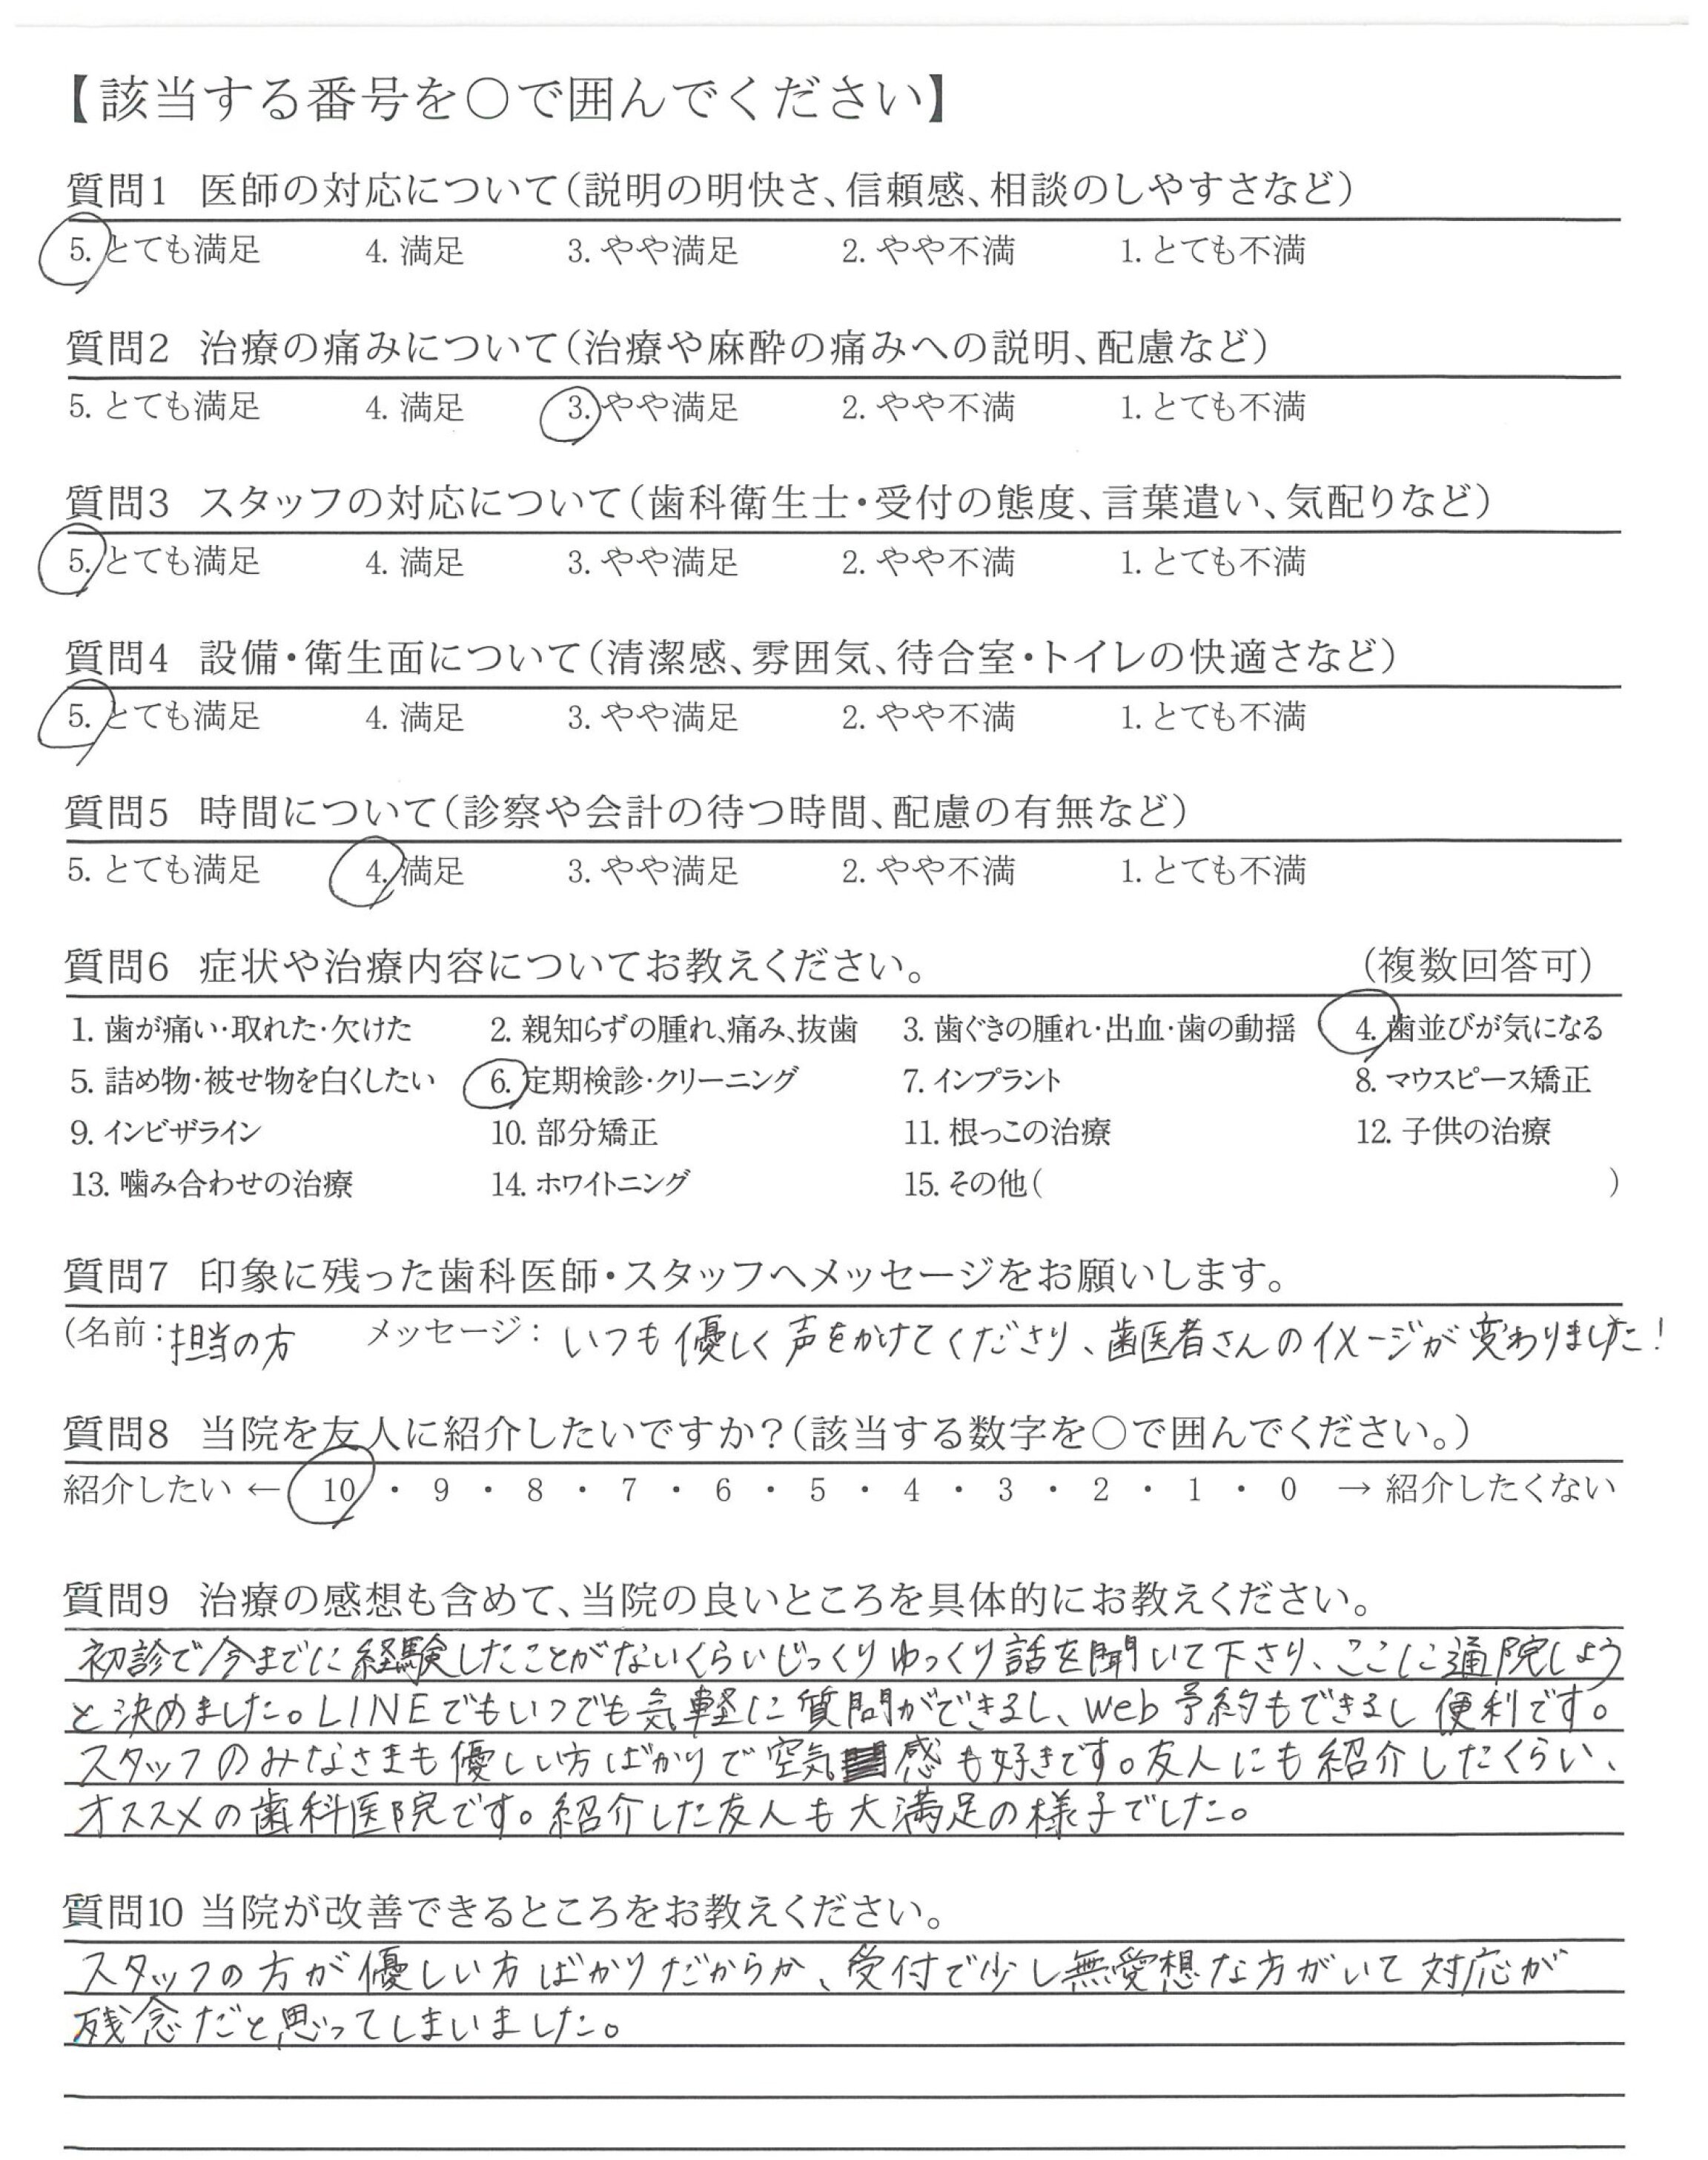 【該当する番号を○で囲んでください】
質問1 医師の対応について（説明の明快さ、信頼感、相談のしやすさなど）
5. とても満足 4. 満足 3. やや満足 2. やや不満 1. とても不満
質問2 治療の痛みについて（治療や麻酔の痛みへの説明、配慮など）
5. とても満足 4. 満足 3. やや満足 2. やや不満 1. とても不満
質問3 スタッフの対応について（歯科衛生士・受付の態度、言葉遣い、気配りなど）
5. とても満足 4. 満足 3. やや満足 2. やや不満 1. とても不満
質問4 設備・衛生面について（清潔感、雰囲気、待合室・トイレの快適さなど）
5. とても満足 4. 満足 3. やや満足 2. やや不満 1. とても不満
質問5 時間について（診察や会計の待つ時間、配慮の有無など）
5. とても満足 4. 満足 3. やや満足 2. やや不満 1. とても不満
質問6 症状や治療内容についてお教えください。 （複数回答可）
1. 歯が痛い・取れた・欠けた 2. 親知らずの腫れ、痛み、抜歯 3. 歯ぐきの腫れ・出血・歯の動揺 4. 歯並びが気になる
5. 詰め物・被せ物を白くしたい 6. 定期検診・クリーニング 7. インプラント 8. マウスピース矯正
9. インビザライン 10. 部分矯正 11. 根っこの治療 12. 子供の治療
13. 噛み合わせの治療 14. ホワイトニング 15. その他（ ）
質問7 印象に残った歯科医師・スタッフへメッセージをお願いします。
（名前：担当の方 メッセージ：いつも優しく声をかけてくださり、歯医者さんのイメージが変わりました！
質問8 当院を友人に紹介したいですか？（該当する数字を○で囲んでください。）
紹介したい ← 10 ・ 9 ・ 8 ・ 7 ・ 6 ・ 5 ・ 4 ・ 3 ・ 2 ・ 1 ・ 0 → 紹介したくない
質問9 治療の感想も含めて、当院の良いところを具体的にお教えください。
初診で今までに経験したことがないくらいじっくりゆっくり話を聞いて下さり、ここに通院しよう
と決めました。LINEでもいつでも気軽に質問ができるし、web予約もできるし便利です。
スタッフのみなさまも優しい方ばかりで空気感も好きです。友人にも紹介したくらい、
オススメの歯科医院です。紹介した友人も大満足の様子でした。
質問10 当院が改善できるところをお教えください。
スタッフの方が優しい方ばかりだからか、受付で少し無愛想な方がいて対応が
残念だと思ってしまいました。